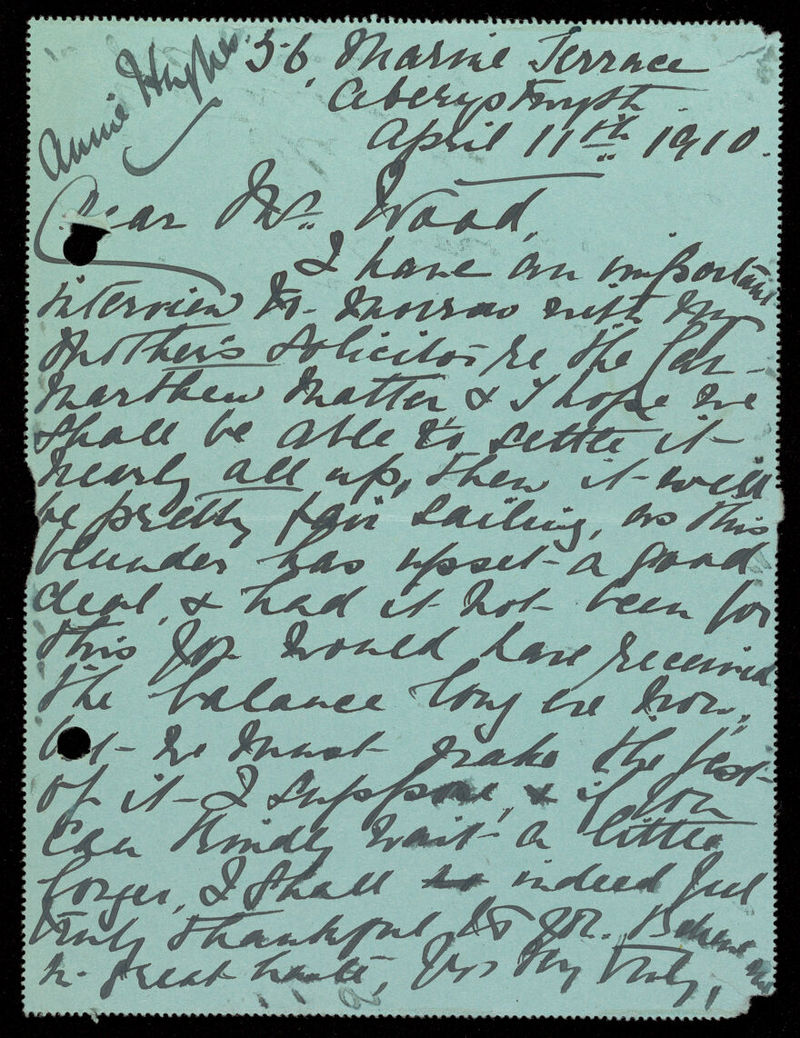 Annie Hughes
56, Marine Terrace
Aberystwyth
April 11th 1910.
Dear Mr. Wood,
I have an important
interview to-morrow with my
Mother's Solicitor re the Car-
marthen Matter & I hope we
shall be able to settle it
nearly all up, then it will
be pretty fair Sailing, as this
blunder has upset a good
deal, & had it not been for
this you would have received
the balance long ere now,
but we must make the best
of it I suppose, & if you
can kindly wait a little
longer, I shall indeed feel
truly thankful to you. Believe me
in great haste, Yrs Vy Truly,